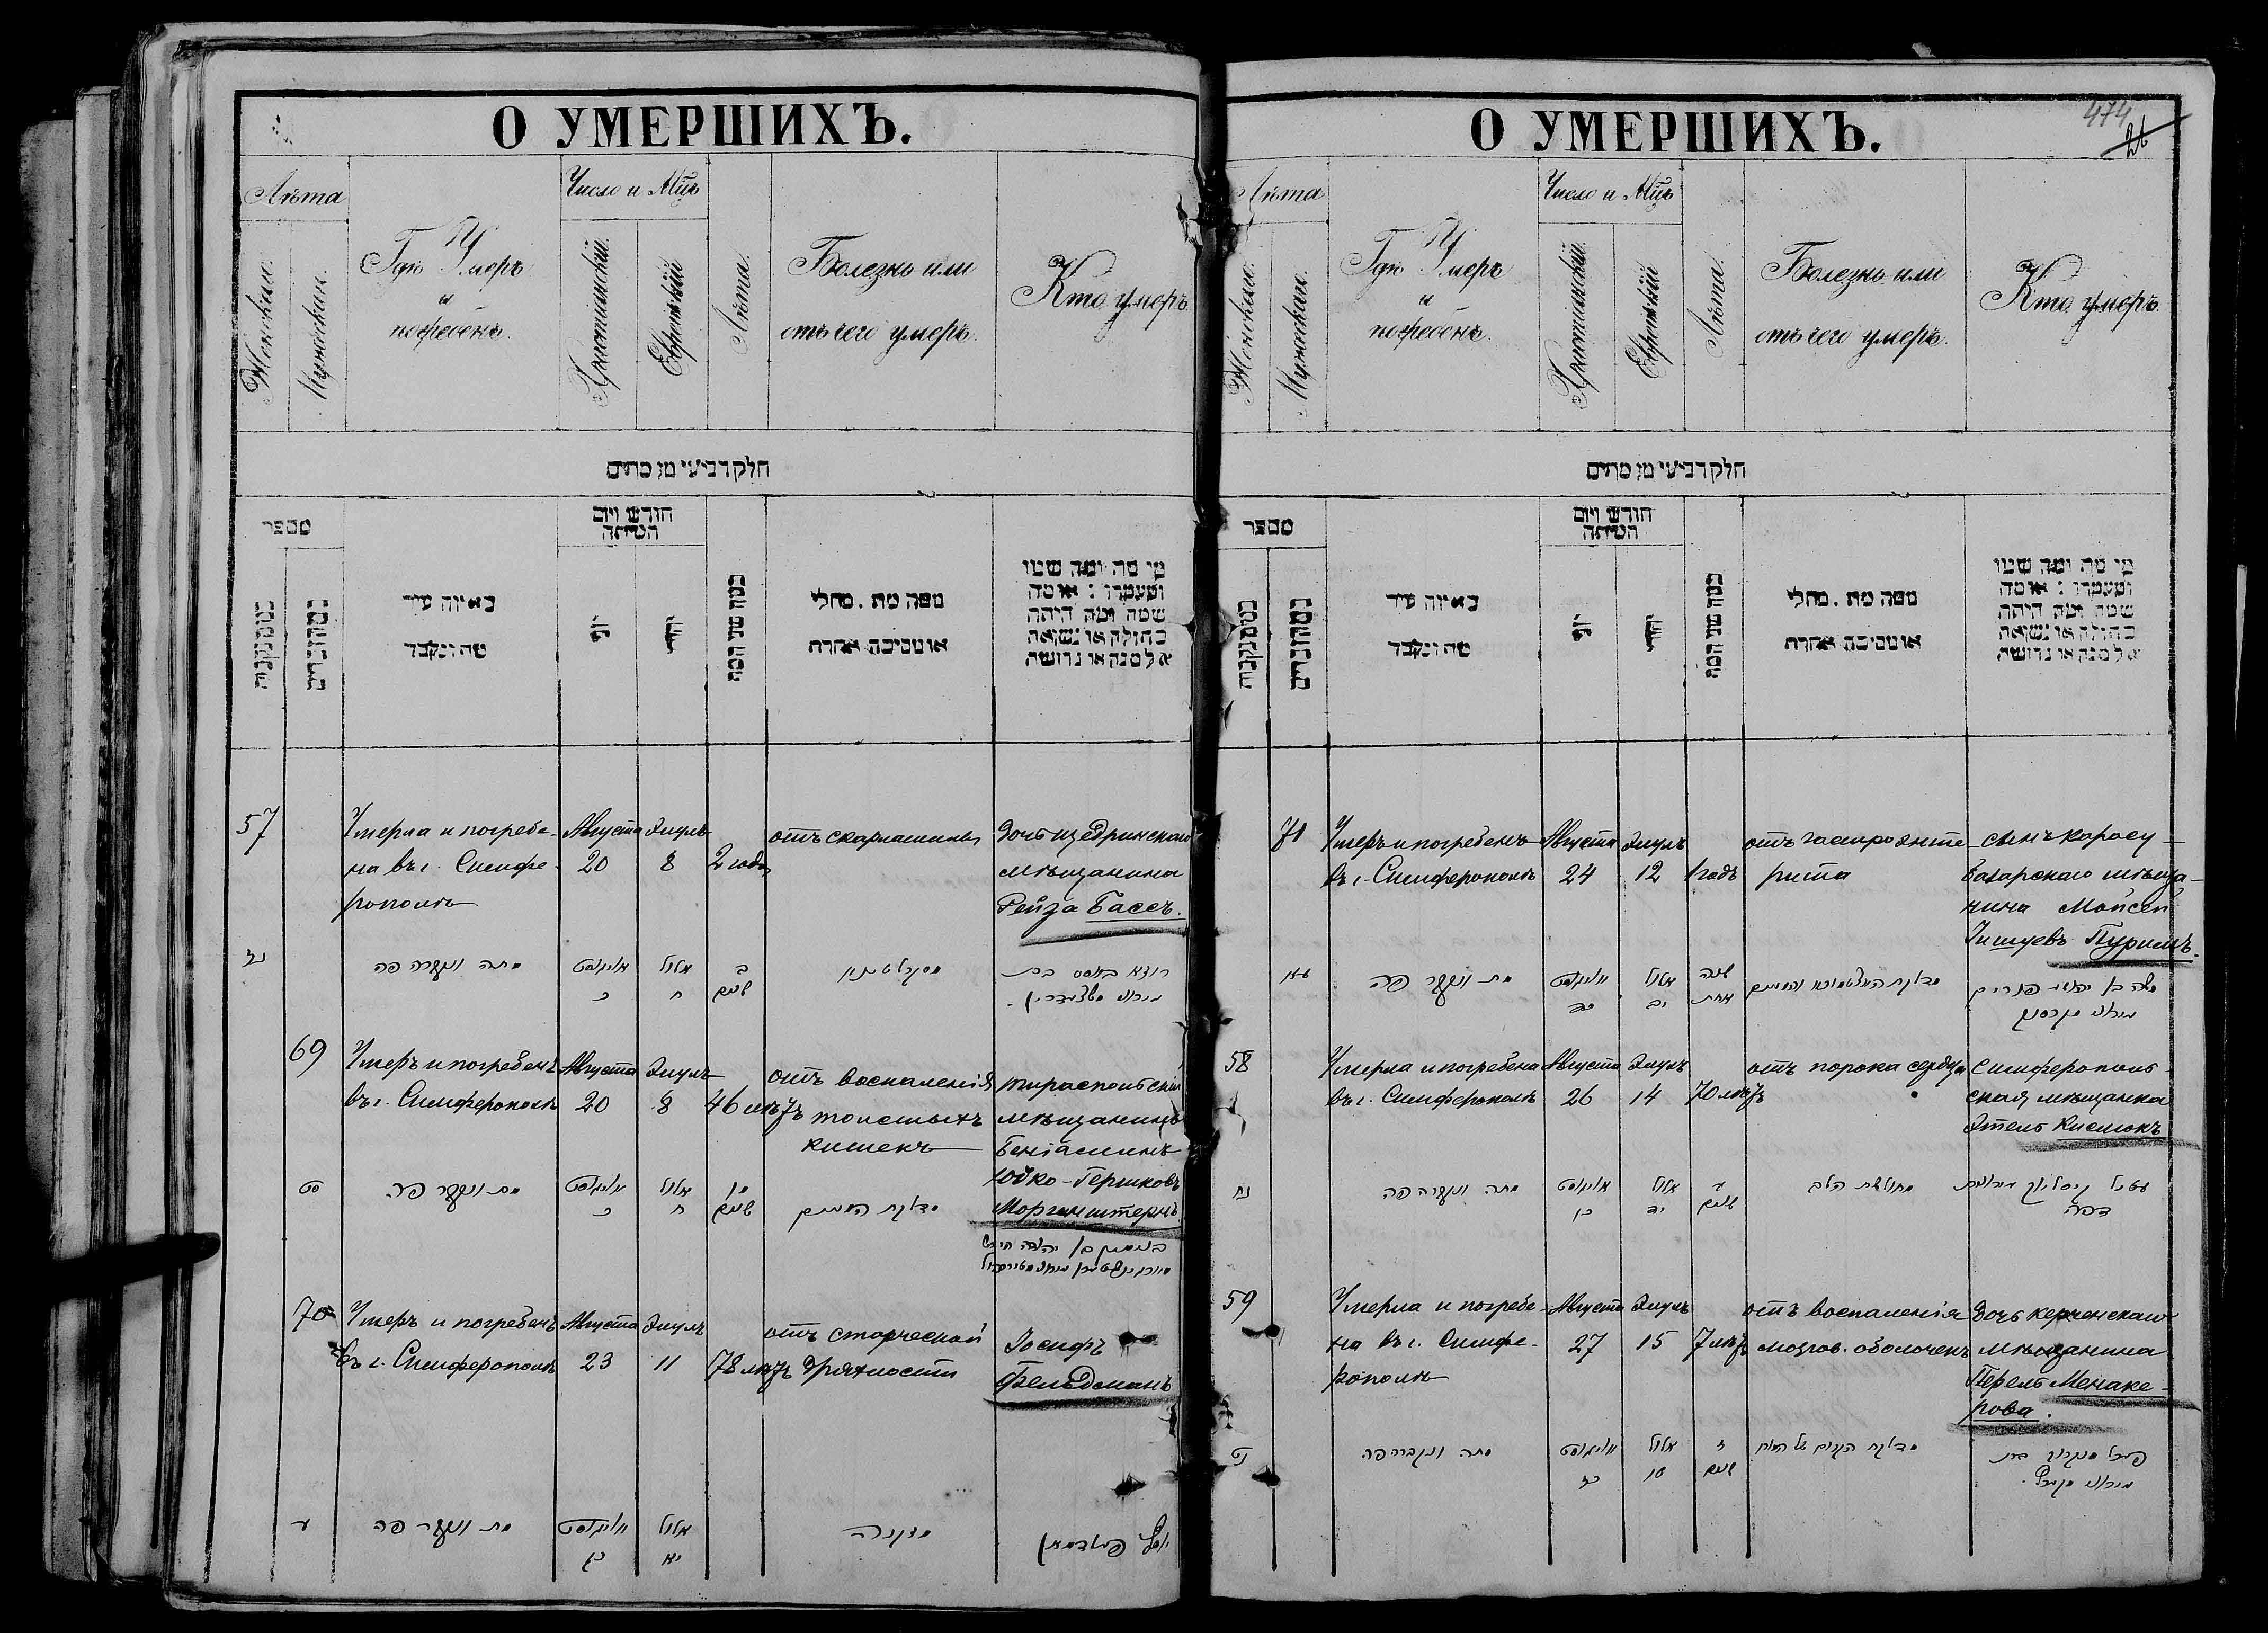 О УМЕРШИХЪ.
Лѣта
Женская.
Мужеская.
Гдѣ Умеръ
и
погребенъ.
Число и Мцъ
Христіанскій.
Еврейскій
Лѣта.
Болезнь или
отъ чего умеръ.
Кто умеръ
חלק רביעי מן מתים
מספר
חודש ויום
המיתה
באיזה עיר
מת ונקבר
ממה מת . מחלי
או מסיבה אחרת
מי מת ומה שמו
ומעמדו : או מה
שמה ומה היתה
בתולה או נשואה
אלמנה או גרושה
57
Умерла и погребе-
на въ г. Симфе-
рополѣ
Августа
20
Элулъ
8
2 года
отъ скарлатины
дочь щедринскаго
мѣщанина
Рейза Бассъ.
נז
מתה ונקברה פה
אויגוסט
כ
אלול
ח
ב
שנים
69
Умеръ и погребенъ
въ г. Симферополѣ
Августа
20
Элулъ
8
46 лѣтъ
отъ воспаленія
толстыхъ
кишекъ
тираспольскій
мѣщанинъ
Беніаминъ
Юдко-Гершковъ
Моргенштернъ
סט
מת ונקבר פה
אויגוסט
כ
אלול
ח
מו
שנים
70
Умеръ и погребенъ
въ г. Симферополѣ
Августа
23
Элулъ
11
78 лѣтъ
отъ старческой
дряхлости
Іосифъ
Фельдманъ
ע
מת ונקבר פה
אויגוסט
כג
אלול
יא
מזקנה
יוסף פעלדמאן
О УМЕРШИХЪ.
474
26
Лѣта
Женская.
Мужеская.
Гдѣ Умеръ
и
погребенъ.
Число и Мцъ
Христіанскій.
Еврейскій
Лѣта.
Болезнь или
отъ чего умеръ.
Кто умеръ.
חלק רביעי מן מתים
מספר
חודש ויום
המיתה
באיזה עיר
מת ונקבר
ממה מת . מחלי
או מסיבה אחרת
מי מת ומה שמו
ומעמדו : או מה
שמה ומה היתה
בתולה או נשואה
אלמנה או גרושה
71
Умеръ и погребенъ
въ г. Симферополѣ
Августа
24
Элулъ
12
1 годъ
отъ гастроэнте-
рита
сынъ карасу-
базарскаго мѣща-
нина Мойсей
Іишуевъ Пуримъ.
עא
מת ונקבר פה
אויגוסט
כד
אלול
יב
שנה
אחת
משה בן יהושע פורים
58
Умерла и погребена
въ г. Симферополѣ
Августа
26
Элулъ
14
70 лѣтъ
отъ порока сердца
Симферополь-
ская мѣщанка
Этель Кислюкъ
נח
מתה ונקברה פה
אויגוסט
כו
אלול
יד
ע
שנים
מחולשת הלב
59
Умерла и погребе-
на въ г. Симфе-
рополѣ
Августа
27
Элулъ
15
7 лѣтъ
отъ воспаленія
мозгов. оболочекъ
дочь керченскаго
мѣщанина
Перель Менаке-
рова.
נט
מתה ונקברה פה
אויגוסט
כז
אלול
טו
ז
שנים